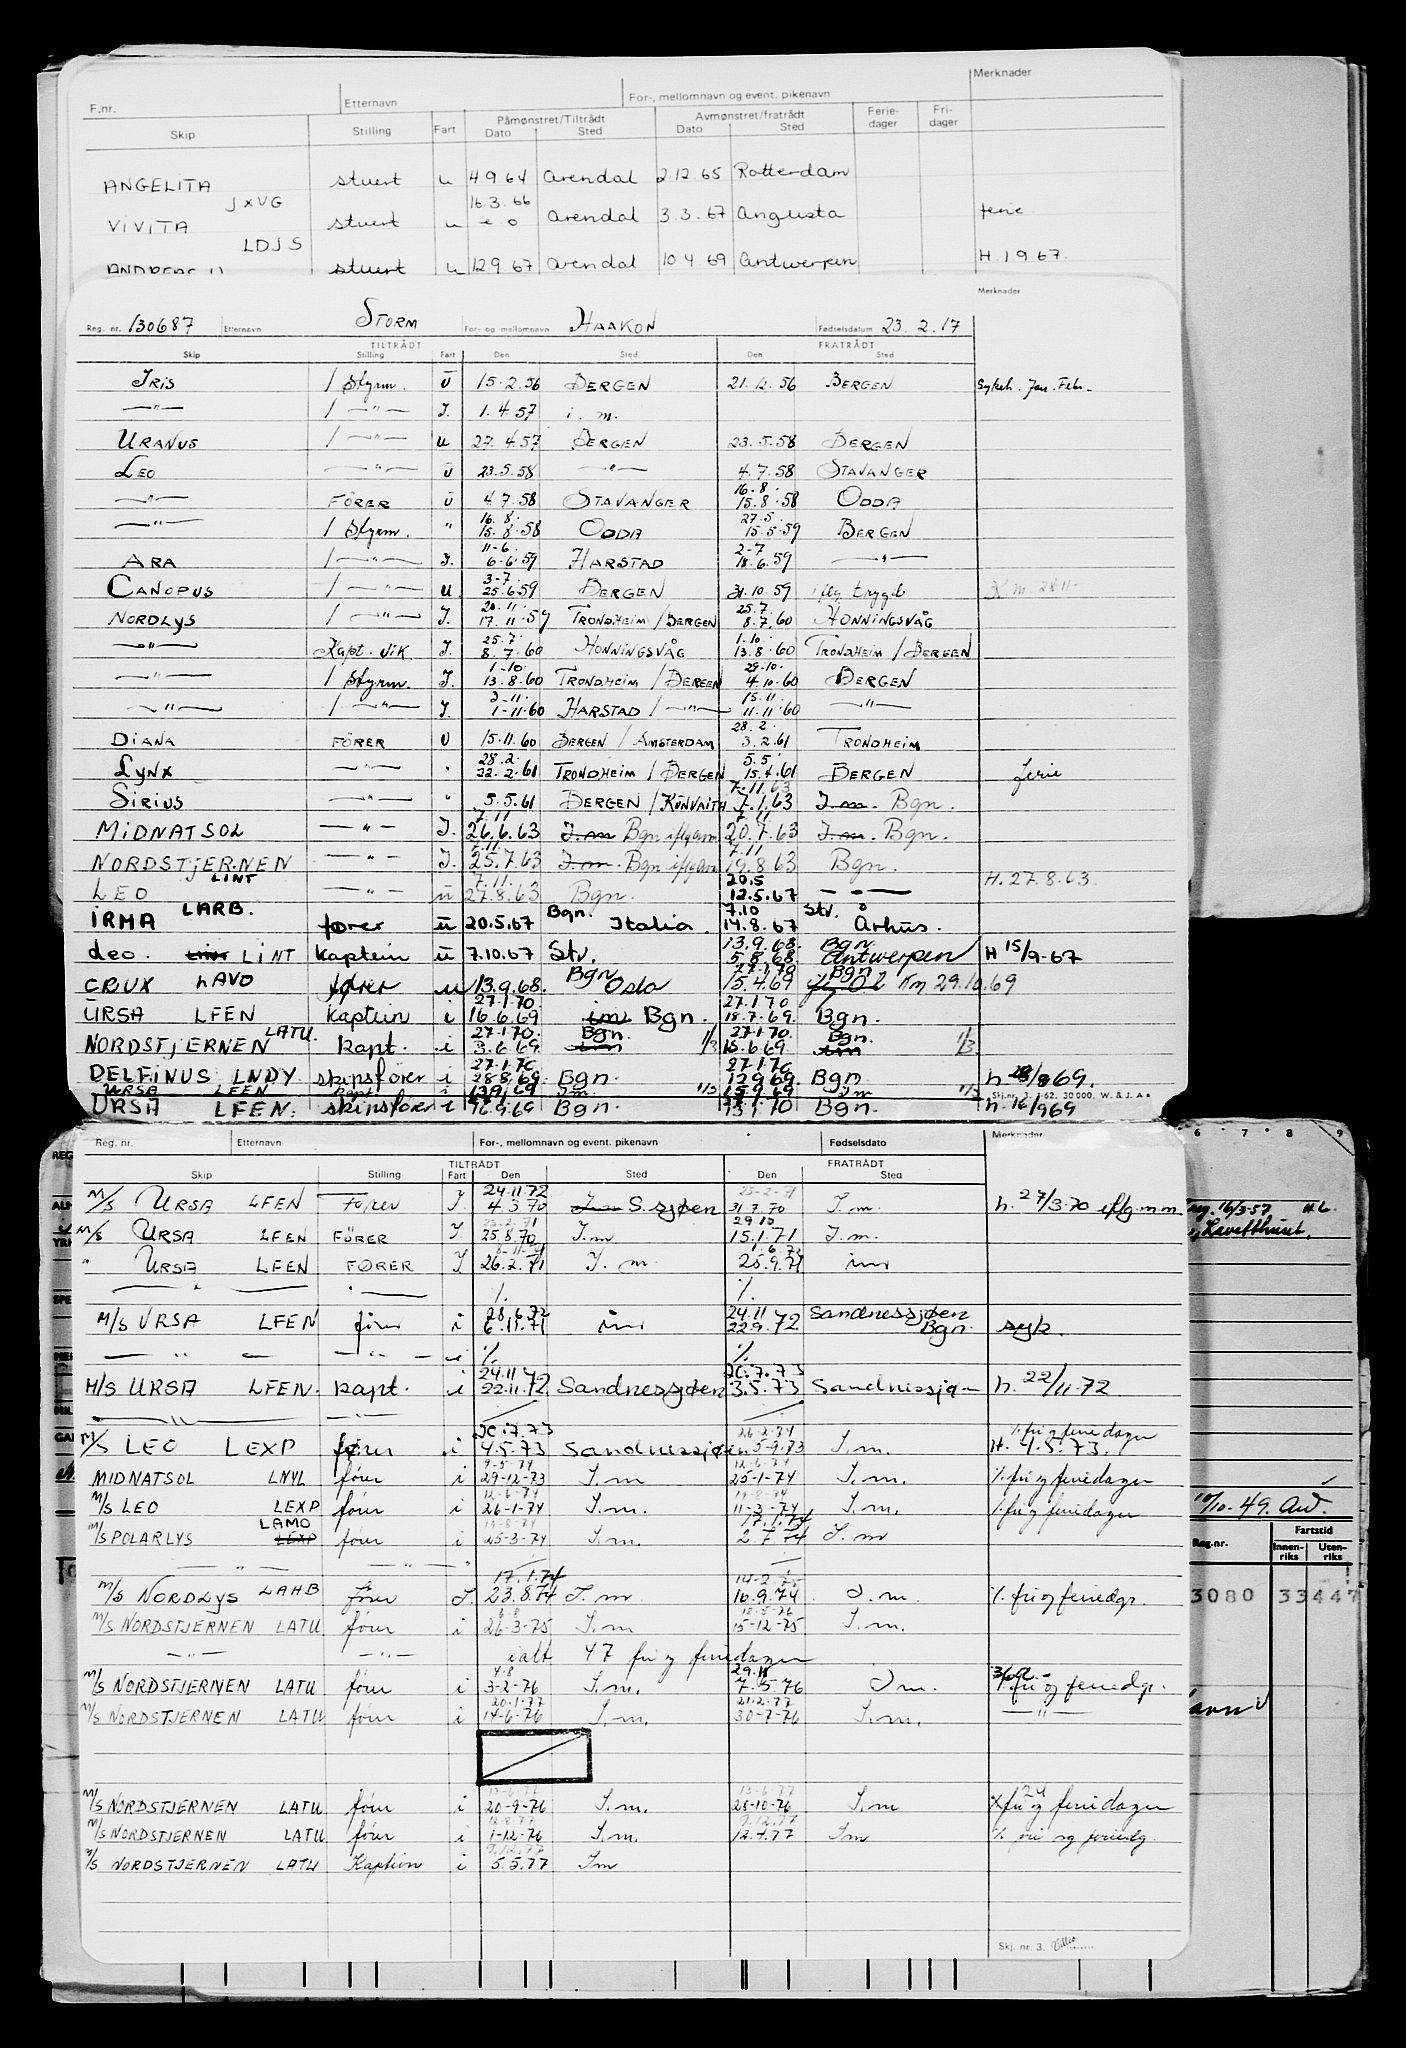 F.nr. Etternavn For-, mellomnavn og event. pikenavn Merknader
Skip Stilling Fart Påmønstret/Tiltrådt Dato Sted Avmønstret/fratrådt Dato Sted Ferie-dager Fri-dager
ANGELITA stuert u 4.9.64 Arendal 2.12.65 Rotterdam
JXVG 16.3.66
VIVITA stuert u Arendal 3.3.67 Augusta ferie
LDJS
stuert u 12.9.67 Arendal 10.4.69 Antwerpen H. 1.9.67.
Merknader
Reg. nr. 130687 Etternavn STORM For- og mellomnavn HAAKON Fødselsdatum 23.2.17
TILTRÅDT FRATRÅDT
Skip Stilling Fart Den Sted Den Sted
IRIS 1 Styrm. Ū 15.2.56 BERGEN 21.12.56 BERGEN Sykeh. Jan. Febr.
—"— 1 —"— I. 1.4.57 i.m.
URANUS 1 —"— u 27.4.57 BERGEN 23.5.58 BERGEN
LEO —"— ū 23.5.58 —"— 4.7.58 STAVANGER
16.8.
—"— FÖRER ū 4.7.58 STAVANGER 15.8.58 ODDA
16.8. 27.5.
—"— 1 Styrm. " 15.8.58 ODDA 15.5.59 BERGEN
11-6. 2-7
ARA 1 —"— I. 6.6.59 HARSTAD 18.6.59 —"—
3-7.
CANOPUS 1 —"— u. 25.6.59 BERGEN 31.10.59 iflg trygd K.m. 28.11.
20.11. 25.7
NORDLYS 1 —"— I. 17.11.59 TRONDHEIM/BERGEN 8.7.60 HONNINGSVÅG
25.7. 1.10.
—"— Kapt. vik I. 8.7.60 HONNINGSVÅG 13.8.60 TRONDHEIM/BERGEN
1-10. 29-10.
—"— 1 Styrm. I. 13.8.60 TRONDHEIM/BERGEN 4.10.60 BERGEN
3-11. 15.11.
—"— 1 —"— I. 1-11-60 HARSTAD/—"— 11.11.60 —"—
28.2.
DIANA FÖRER U 15.11.60 BERGEN/AMSTERDAM 3.2.61 TRONDHEIM
28.2. 5.5.
LYNX —"— " 22.2.61 TRONDHEIM/BERGEN 15.4.61 BERGEN ferie
7.11.63
SIRIUS —"— " 5.5.61 BERGEN/KUWAITH 7.1.63 I.m. Bgn.
7.11 7.11
MIDNATSOL —"— I. 26.6.63 I.m Bgn iflg am 20.7.63 I.m. Bgn.
7.11 7.11
NORDSTJERNEN —"— I. 25.7.63 I.m. Bgn iflg am 19.8.63 Bgn.
LINT 7.11. 20.5
LEO —"— ū 27.8.63 Bgn. 12.5.67 —"— H. 27.8.63.
LARB. Bgn. 7.10 Stv.
IRMA fører ū 20.5.67 Italia. 14.8.67 Århus.
13.9.68. Bgn.
Leo. LINT LINT kaptein ū 7.10.67 Stv. 5.8.68 Antwerpen H 15/9-67
Bgn 27.1.70 Bgn
CRUX LAVO fører u 13.9.68. Oslo 15.4.69 Km 29.10.69
27.1.70. 27.1.70
URSA LFEN kaptein i 16.6.69 im Bgn. 18.7.69. Bgn.
LATU. 27.1.70. Bgn. 27.1.70 Bgn.
NORDSTJERNEN kapt. i 3.6.69. im 1/3 15.6.69. im 1/3.
27.1.70 27.1.70
DELFINUS LNDY skipsfører i 28.8.69. Bgn. 12.9.69. Bgn h. 28/8 69.
URSA LFEN kapt i 13.9.69 Im. 1/3 15.9.69 Im 1/3 Skj.nr. 3. 1-62. 30 000. W. & J. A.
URSA LFEN. skipsfører i 16.9.69 Bgn. 13.1.70 Bgn. h. 16/9 69
Reg. nr. Etternavn For-, mellomnavn og event. pikenavn Fødselsdato Merknader
TILTRÅDT FRATRÅDT
Skip Stilling Fart Den Sted Den Sted
24.11.72 23-2-71
M/S URSA LFEN Fører I. 4.3.70 S.sjøen 31.7.70 I.m. h. 27/3.70 iflg. m.m.
23-2-71 29.10
M/S URSA LFEN FÖRER I. 25.8.70 I.m 15.1.71 I.m.
8-11-71 1.6.72
" URSA LFEN FØRER I 26.2.71 I. m 25.9.71 im
—"— —"— %. %.
28.6.72 24.11 Sandnessjøen
M/S URSA LFEN fører i 6.11.71 im 22.9.72 Bgn. syk.
—"— —"— i %. %.
24.11 20.7.73
M/S URSA LFEN. kapt. i 22.11.72 Sandnessjøen 3.5.73 Sandnessjø— h. 22/11.72
—"— —"—
20.7.73 26-2-74 %. fri og feriedager
M/S LEO LEXP fører i 4.5.73 Sandnessjøen 5-9.73 I.m. H. 4.5.73.
9-5-74 12-6-74
MIDNATSOL LNYL fører i 29-12-73 I.m 25-1-74 I.m. %. fri og feriedager
12-6-74 19-8-74
M/S LEO LEXP fører i 26-1-74 I.m. 11-3-74 I.m. %. fri og feriedager
LAMO 19-8-74 17.1.74
M/S POLARLYS LEXP fører i 25-3-74 I.m. 2.7.74 I.m
—"— —"—
17.1.74 14-2-75
M/S NORDLYS LAHB fører I. 23.8.74 I.m 16.9.74 I.m. %. fri og feriedgr.
6.8 18-5-76
M/S NORDSTJERNEN LATU fører i 26-3-75 I.m 15-12-75 I.m.
—"— —"— ialt 47 fri og feriedager
4.8 29.11
M/S NORDSTJERNEN LATU fører i 3-2-76 I.m. 7.5.76 I m. %. fri og feriedgr.
20.1.77 21.2.77
M/S NORDSTJERNEN LATU fører i 14-6-76 I.m. 30-7-76 I.m. —"—
13-6-77 13-6-77 24
M/S NORDSTJERNEN LATU fører i 20-9-76 I.m. 25-10-76 I.m fri og feriedager
12.8.77 9.12.77
M/S NORDSTJERNEN LATU fører i 1-12-76 I.m. 12.4.77 Im %. fri og feriedg.
9.12.77
M/S NORDSTJERNEN LATU Kaptein i 5.5.77 Im
Skj. nr. 3.
6 7 8 9
16/3-57
10/10-49.
Reg.nr. Fartstid
Innen-riks Uten-riks
3080 33447